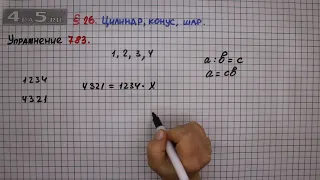 4a5.ru
§ 26. Цилиндр, конус, шар.
Упражнение 783.
1, 2, 3, 4
a : b = c
a = cb
1234
4321
4321 = 1234 · x